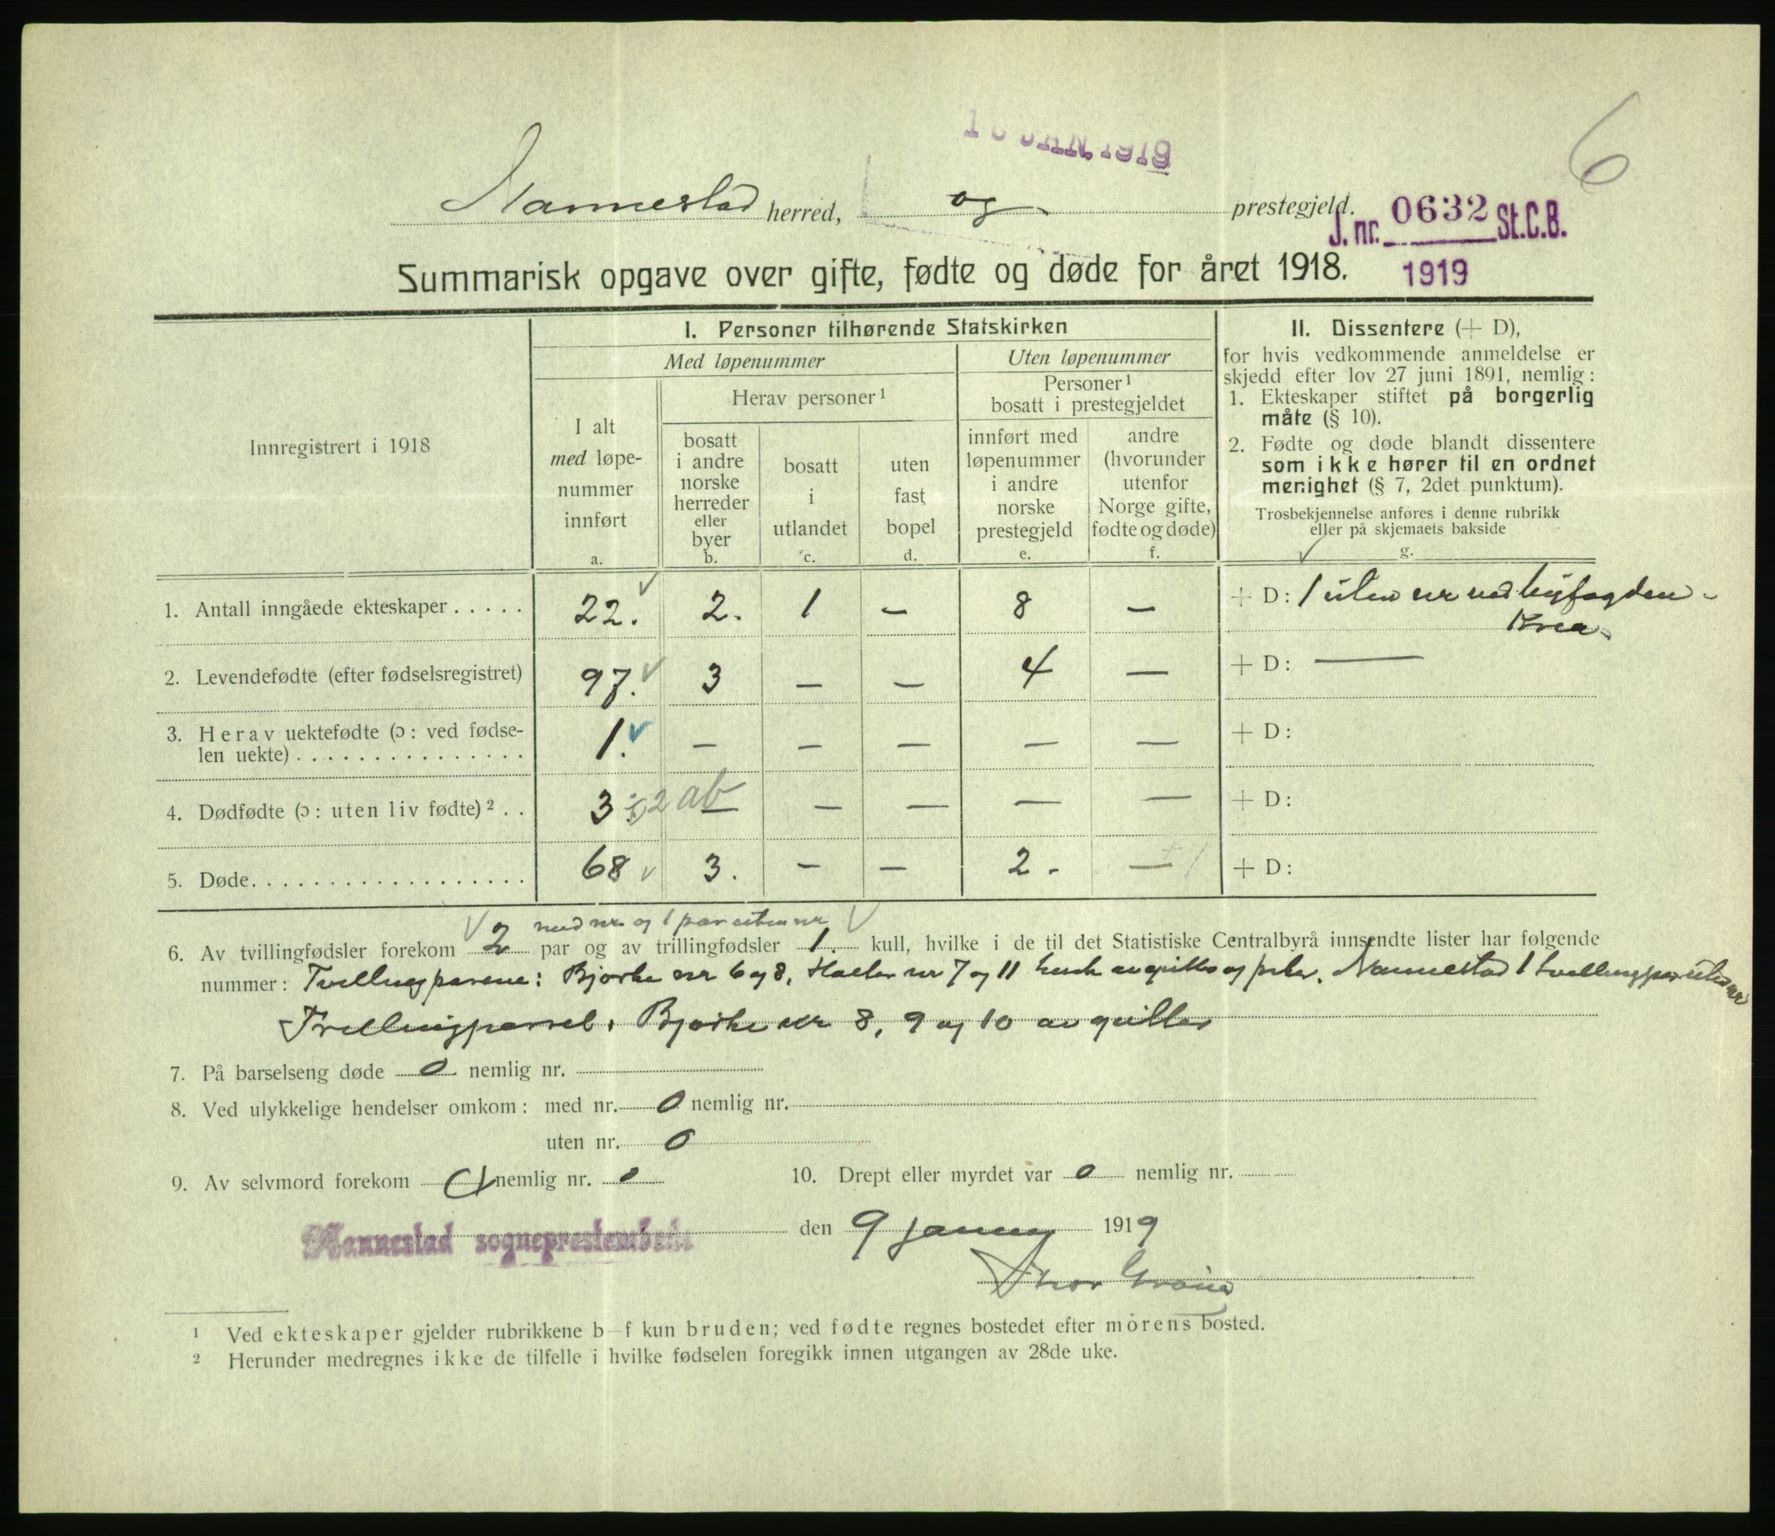 6
JAN. 1919
Nannestad herred, og prestegjeld.
J. nr. 0632 St.C.B.
1919
Summarisk opgave over gifte, fødte og døde for året 1918.
Innregistrert i 1918
I. Personer tilhørende Statskirken
Med løpenummer
Uten løpenummer
I alt
med løpe-
nummer
innført
a.
Herav personer ¹
bosatt
i andre
norske
herreder
eller
byer
b.
bosatt
i
utlandet
c.
uten
fast
bopel
d.
Personer ¹
bosatt i prestegjeldet
innført med
løpenummer
i andre
norske
prestegjeld
e.
andre
(hvorunder
utenfor
Norge gifte,
fødte og døde)
f.
II. Dissentere (+ D),
for hvis vedkommende anmeldelse er
skjedd efter lov 27 juni 1891, nemlig:
1. Ekteskaper stiftet på borgerlig
måte (§ 10).
2. Fødte og døde blandt dissentere
som ikke hører til en ordnet
menighet (§ 7, 2det punktum).
Trosbekjennelse anføres i denne rubrikk
eller på skjemaets bakside
g.
1. Antall inngåede ekteskaper ..... 22. 2. 1 — 8 — + D: 1 uten nr ved byfogden
Kria.
2. Levendefødte (efter fødselsregistret) 97. 3 — — 4 — + D: —
3. Herav uektefødte (ɔ: ved fødse-
len uekte) ............... 1. — — — — — + D:
4. Dødfødte (ɔ: uten liv fødte) ² .. 3 2 ab — — — — — + D:
5. Døde. ................. 68 3. — — 2. — + D:
med nr og 1 par uten nr
6. Av tvillingfødsler forekom 2 par og av trillingfødsler 1. kull, hvilke i de til det Statistiske Centralbyrå innsendte lister har følgende
nummer: Tvillingparene: Bjørke nr 6 og 8, Holter nr 7 og 11 av og Nannestad 1 tvillingpar uten nr
Trillingparret: Bjørke nr 8, 9 og 10 av gutter
7. På barselseng døde 0 nemlig nr.
8. Ved ulykkelige hendelser omkom: med nr. 0 nemlig nr.
uten nr. 0
9. Av selvmord forekom nemlig nr. 0 10. Drept eller myrdet var 0 nemlig nr.
Nannestad sogneprestembede den 9 januar 1919
Thor
¹ Ved ekteskaper gjelder rubrikkene b—f kun bruden; ved fødte regnes bostedet efter mórens bosted.
² Herunder medregnes ikke de tilfelle i hvilke fødselen foregikk innen utgangen av 28de uke.